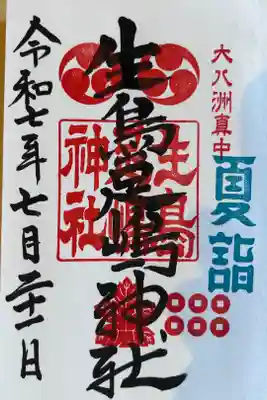 大八洲真中
夏詣
生島足嶋神社
生島足嶋神社
令和七年七月二十一日